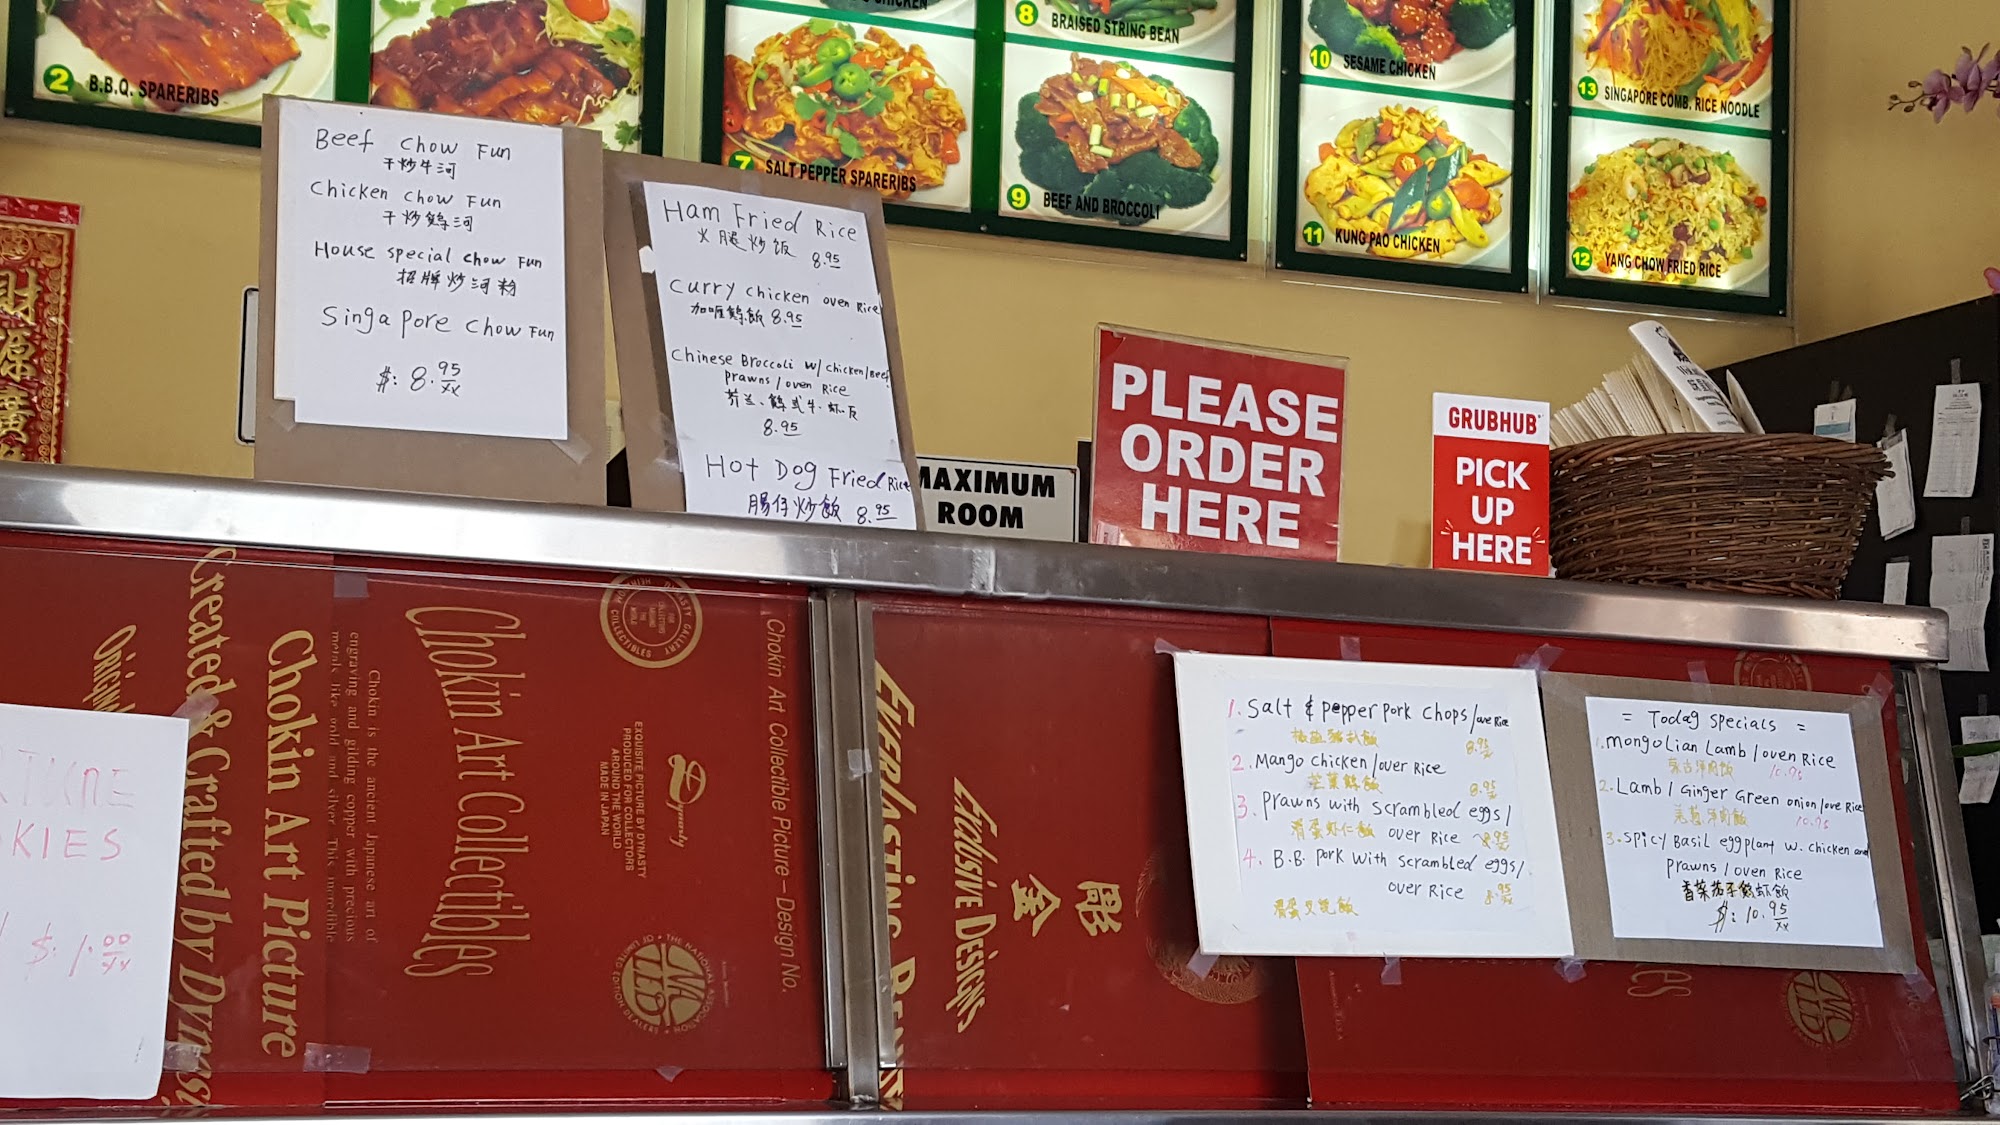 CHICKEN
8 BRAISED STRING BEAN
10 SESAME CHICKEN
13 SINGAPORE COMB. RICE NOODLE
2 B.B.Q. SPARERIBS
7 SALT PEPPER SPARERIBS
9 BEEF AND BROCCOLI
11 KUNG PAO CHICKEN
12 YANG CHOW FRIED RICE
財源廣
Beef Chow Fun
干炒牛河
Chicken Chow Fun
干炒鷄河
House special Chow Fun
招牌炒河粉
Singapore Chow Fun
$: 8.95
Ham Fried Rice
火腿炒饭 8.95
Curry chicken over Rice
8.95
Chinese Broccoli w/ chicken/Beef
prawns/over Rice
8.95
Hot Dog Fried Rice
腸仔炒飯 8.95
MAXIMUM
ROOM
PLEASE
ORDER
HERE
GRUBHUB
PICK
UP
HERE
KIES
$: 1.00
Created & Crafted by
Chokin Art Picture
Chokin is the ancient Japanese art of
engraving and gilding copper with precious
metals like gold and silver. This incredible
Chokin Art Collectibles
EXQUISITE PICTURE BY DYNASTY
PRODUCED FOR COLLECTORS
AROUND THE WORLD
MADE IN JAPAN
Dynasty
Chokin Art Collectible Picture – Design No.
EVERLASTING
Exclusive DESIGNS
彫金
1. Salt & pepper pork chops/over Rice
8.95
2. Mango chicken/over Rice
8.95
3. prawns with scrambled eggs/
滑蛋虾仁飯 over Rice 8.95
4. B.B. pork with scrambled eggs/
over Rice 8.95
滑蛋叉烧飯
= Today specials =
1. Mongolian Lamb/over Rice
10.95
2. Lamb/Ginger Green onion/over Rice
10.95
3. Spicy Basil eggplant w. chicken and
prawns/over Rice
$: 10.95